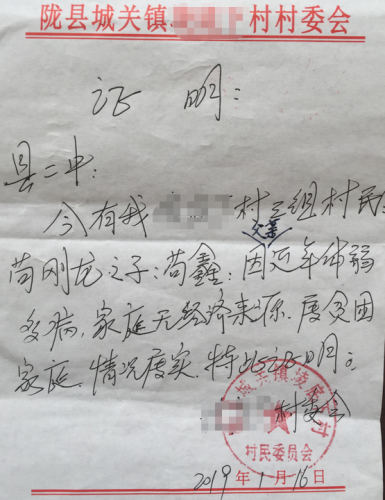 陇县城关镇 村村委会
证 明:
县二中:
今有我 村三组村民
苟刚龙之子:苟鑫:因近年体弱
多病,家庭无经济来源.属贫困
家庭.情况属实.特此证明。
村委会
村民委员会
2019年1月16日